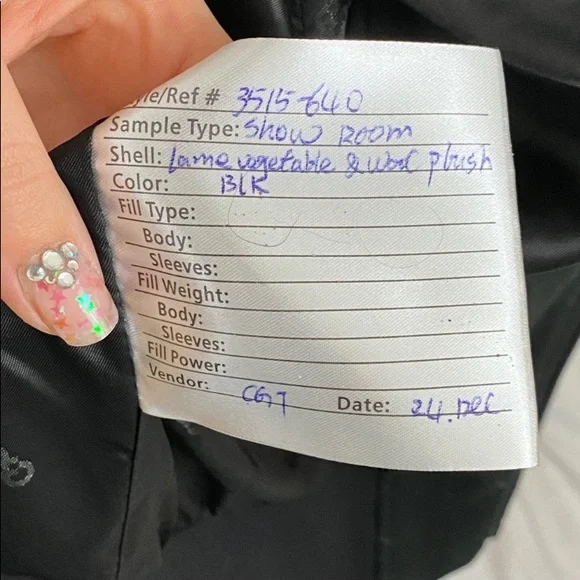 yle/Ref # 3515-640
Sample Type: Show Room
Shell: Lame vegetable & wool plush
Color: BLK
Fill Type:
Body:
Sleeves:
Fill Weight:
Body:
Sleeves:
Fill Power:
Vendor: CGT Date: 24.DEC